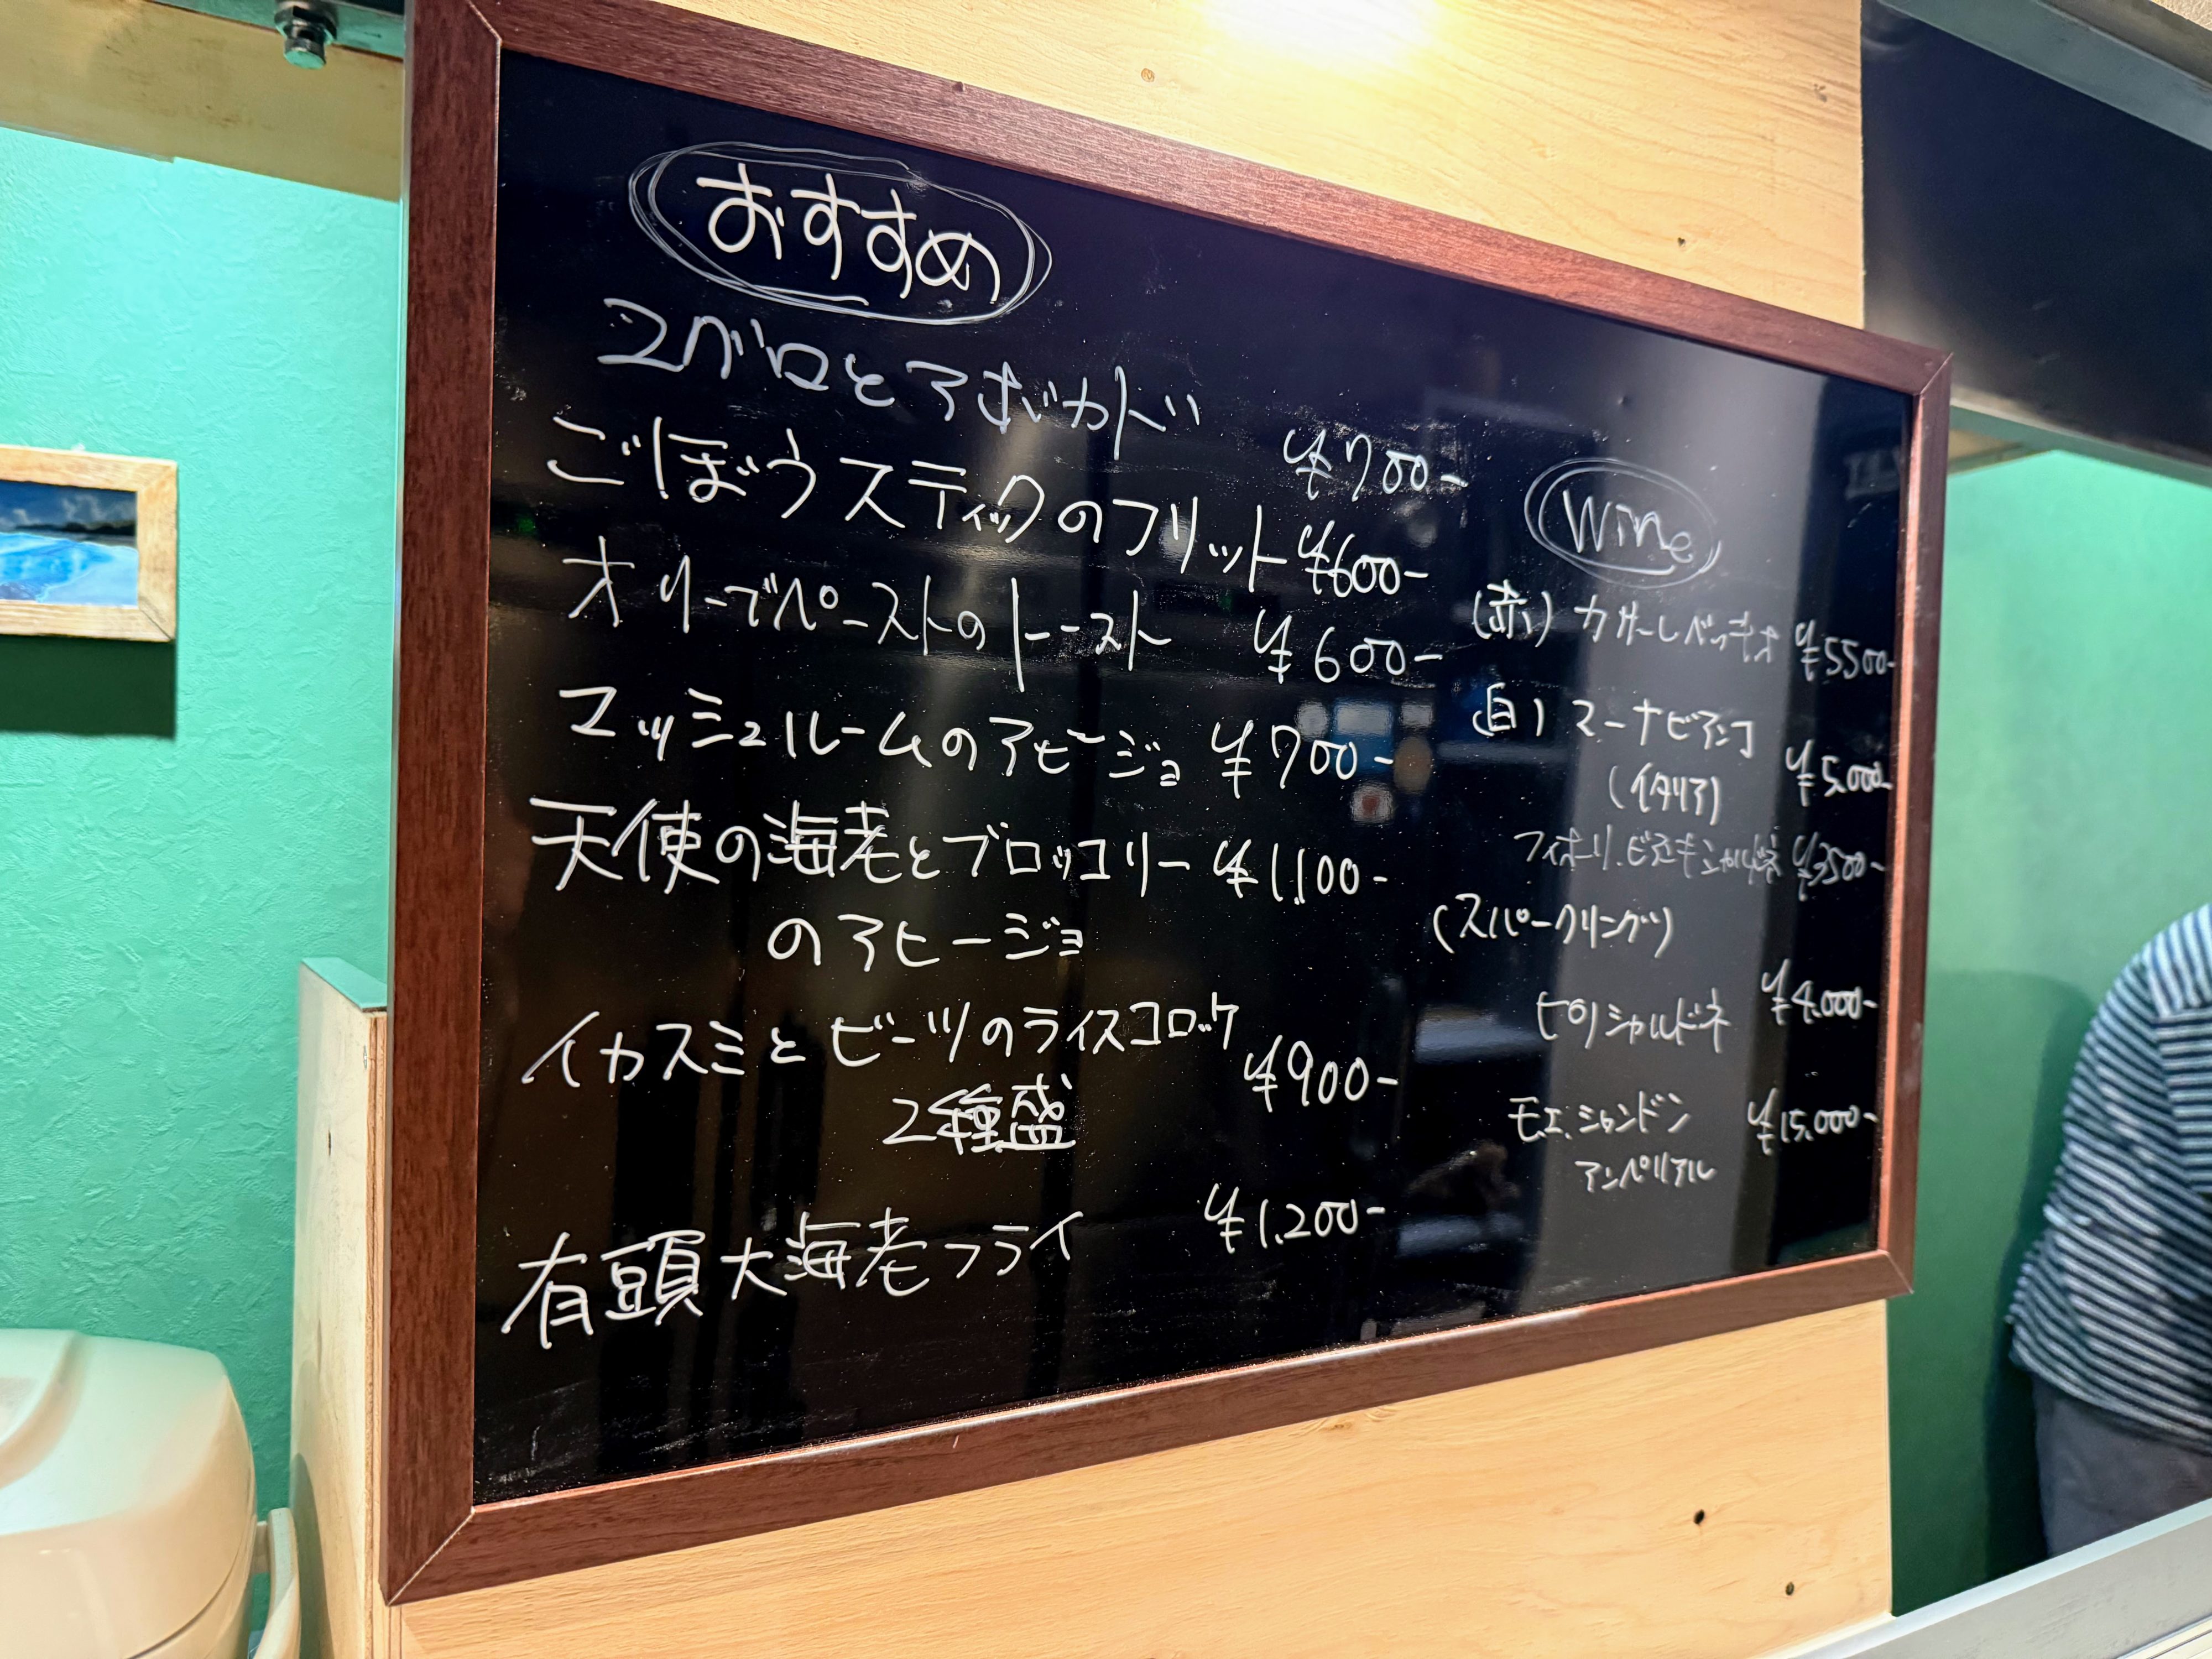 おすすめ
マグロとアボカド ¥700-
ごぼうスティックのフリット ¥600-
オリーブペーストのトースト ¥600-
マッシュルームのアヒージョ ¥700-
天使の海老とブロッコリー ¥1,100-
のアヒージョ
イカスミとビーツのライスコロッケ ¥900-
2種盛
有頭大海老フライ ¥1,200-
Wine
(赤) カサーレベッキオ ¥5500-
(白)
(イタリア) ¥5.000-
フィオーリ. シャルドネ ¥3500-
(スパークリング)
シャルドネ ¥4.000-
モエ.シャンドン ¥15.000-
アンペリアル